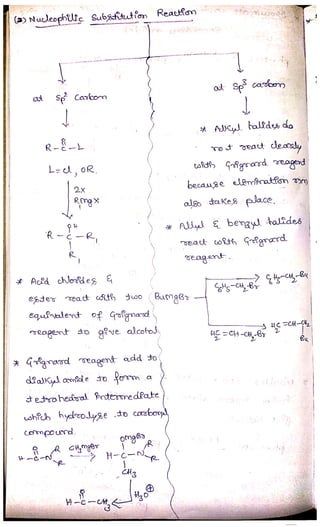 (2) Nucleophilic Substitution Reaction
at sp² Carbon
O
R-C-L
L=Cl, OR.
2x
R₁mgx
OH
R-C-R₁
R₁
* Acid chlorides &
ester react with two
equivalent of Grignard
reagent to give alcohol.
* Grignard reagent add to
dialkyl amide to form a
tetrahedral Intermediate
which hydrolyse to carbonyl
compound.
O
H-C-N
R
R
CH₃mgBr
OmgBr
H-C-N
R
R
CH₃
H₃O⊕
O
H-C-CH₃
at sp³ carbon
* Alkyl halides do
not react clearly
with Grignard reagent
because elimination rxn
also takes place.
* Allyl & benzyl halides
react with Grignard
reagent.
BuMgBr
C₆H₅-CH₂-Br
C₆H₅-CH₂-Bu
H₂C=CH-CH₂-Br
H₂C=CH-CH₂
Bu